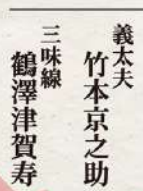 義太夫
竹本京之助
三味線
鶴澤津賀寿